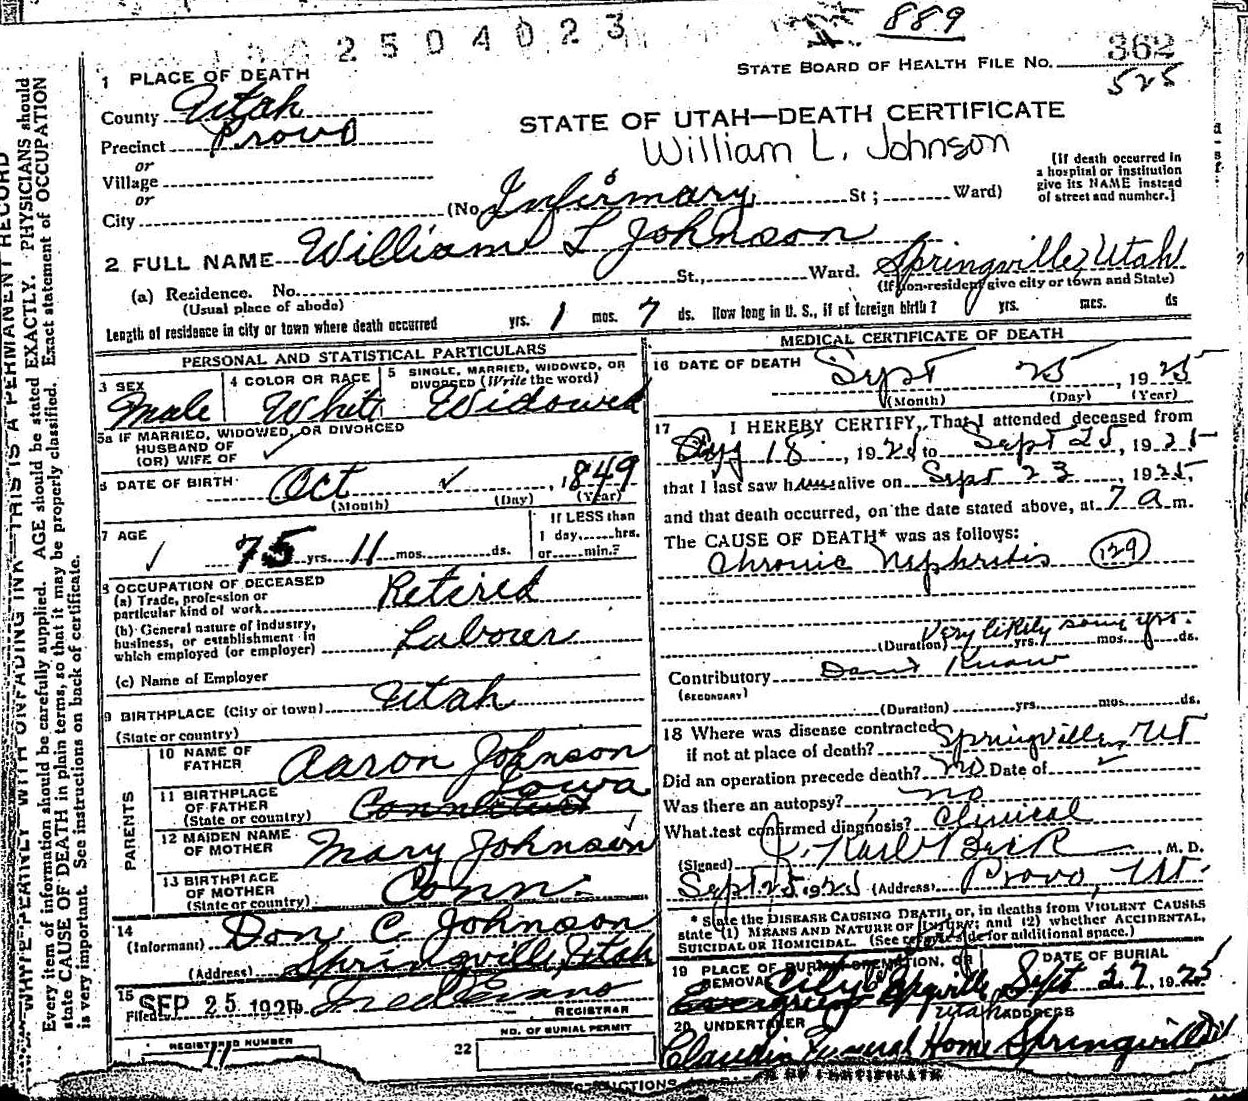 2504023
889
362
STATE BOARD OF HEALTH FILE NO.
525
1 PLACE OF DEATH
County Utah
STATE OF UTAH—DEATH CERTIFICATE
Precinct Provo
William L. Johnson
or
Village
or
City (No. Infirmary St; Ward)
(If death occurred in
a hospital or institution
give its NAME instead
of street and number.)
2 FULL NAME William L Johnson
(a) Residence. No. St., Ward. Springville, Utah
(Usual place of abode) (If non-resident give city or town and State)
Length of residence in city or town where death occurred yrs. 1 mos. 7 ds. How long in U. S., if of foreign birth? yrs. mos. ds
PERSONAL AND STATISTICAL PARTICULARS
3 SEX
Male
4 COLOR OR RACE
White
5 SINGLE, MARRIED, WIDOWED, OR
DIVORCED (Write the word)
Widowed
5a IF MARRIED, WIDOWED, OR DIVORCED
HUSBAND OF
(OR) WIFE OF ✓
6 DATE OF BIRTH Oct ✓, 1849
(Month) (Day) (Year)
7 AGE
✓ 75 yrs. 11 mos. ds.
If LESS than
1 day, hrs.
or min.?
8 OCCUPATION OF DECEASED
(a) Trade, profession or
particular kind of work Retired
(b) General nature of industry,
business, or establishment in
which employed (or employer) Laborer
(c) Name of Employer
9 BIRTHPLACE (City or town) Utah
(State or country)
PARENTS
10 NAME OF
FATHER Aaron Johnson
11 BIRTHPLACE
OF FATHER Iowa
(State or country) Connecticut
12 MAIDEN NAME
OF MOTHER Mary Johnson
13 BIRTHPLACE
OF MOTHER Conn.
(State or country)
14
(Informant) Don C. Johnson
(Address) Springville, Utah
15
Filed SEP 25 192 Fred Evans
REGISTRAR
REGISTERED NUMBER
11
22 NO. OF BURIAL PERMIT
MEDICAL CERTIFICATE OF DEATH
16 DATE OF DEATH Sept 25, 1925
(Month) (Day) (Year)
17 I HEREBY CERTIFY, That I attended deceased from
18, 1925 to Sept 25, 1925
that I last saw him alive on Sept 23, 1925,
and that death occurred, on the date stated above, at 7 a m.
The CAUSE OF DEATH* was as follows:
Chronic Nephritis 129
Very likely some yrs.
(Duration) yrs. mos. ds.
Contributory Don't Know
(SECONDARY)
(Duration) yrs. mos. ds.
18 Where was disease contracted
if not at place of death? Springville, Ut
Did an operation precede death? No Date of
Was there an autopsy? no
What test confirmed diagnosis? Clinical
(Signed) J. Karl Beck, M. D.
Sept 25, 1925 (Address) Provo, Ut.
* State the DISEASE CAUSING DEATH, or, in deaths from VIOLENT CAUSES
state (1) MEANS AND NATURE OF INJURY; and (2) whether ACCIDENTAL,
SUICIDAL OR HOMICIDAL. (See reverse side for additional space.)
19 PLACE OF BURIAL, CREMATION, OR
REMOVAL City
Evergreen Springville
Utah
DATE OF BURIAL
Sept 27, 1925
20 UNDERTAKER ADDRESS
Claudin Funeral Home Springville
WRITE PLAINLY WITH UNFADING INK—THIS IS A PERMANENT RECORD
Every item of information should be carefully supplied. AGE should be stated EXACTLY. PHYSICIANS should
state CAUSE OF DEATH in plain terms, so that it may be properly classified. Exact statement of OCCUPATION
is very important. See instructions on back of certificate.